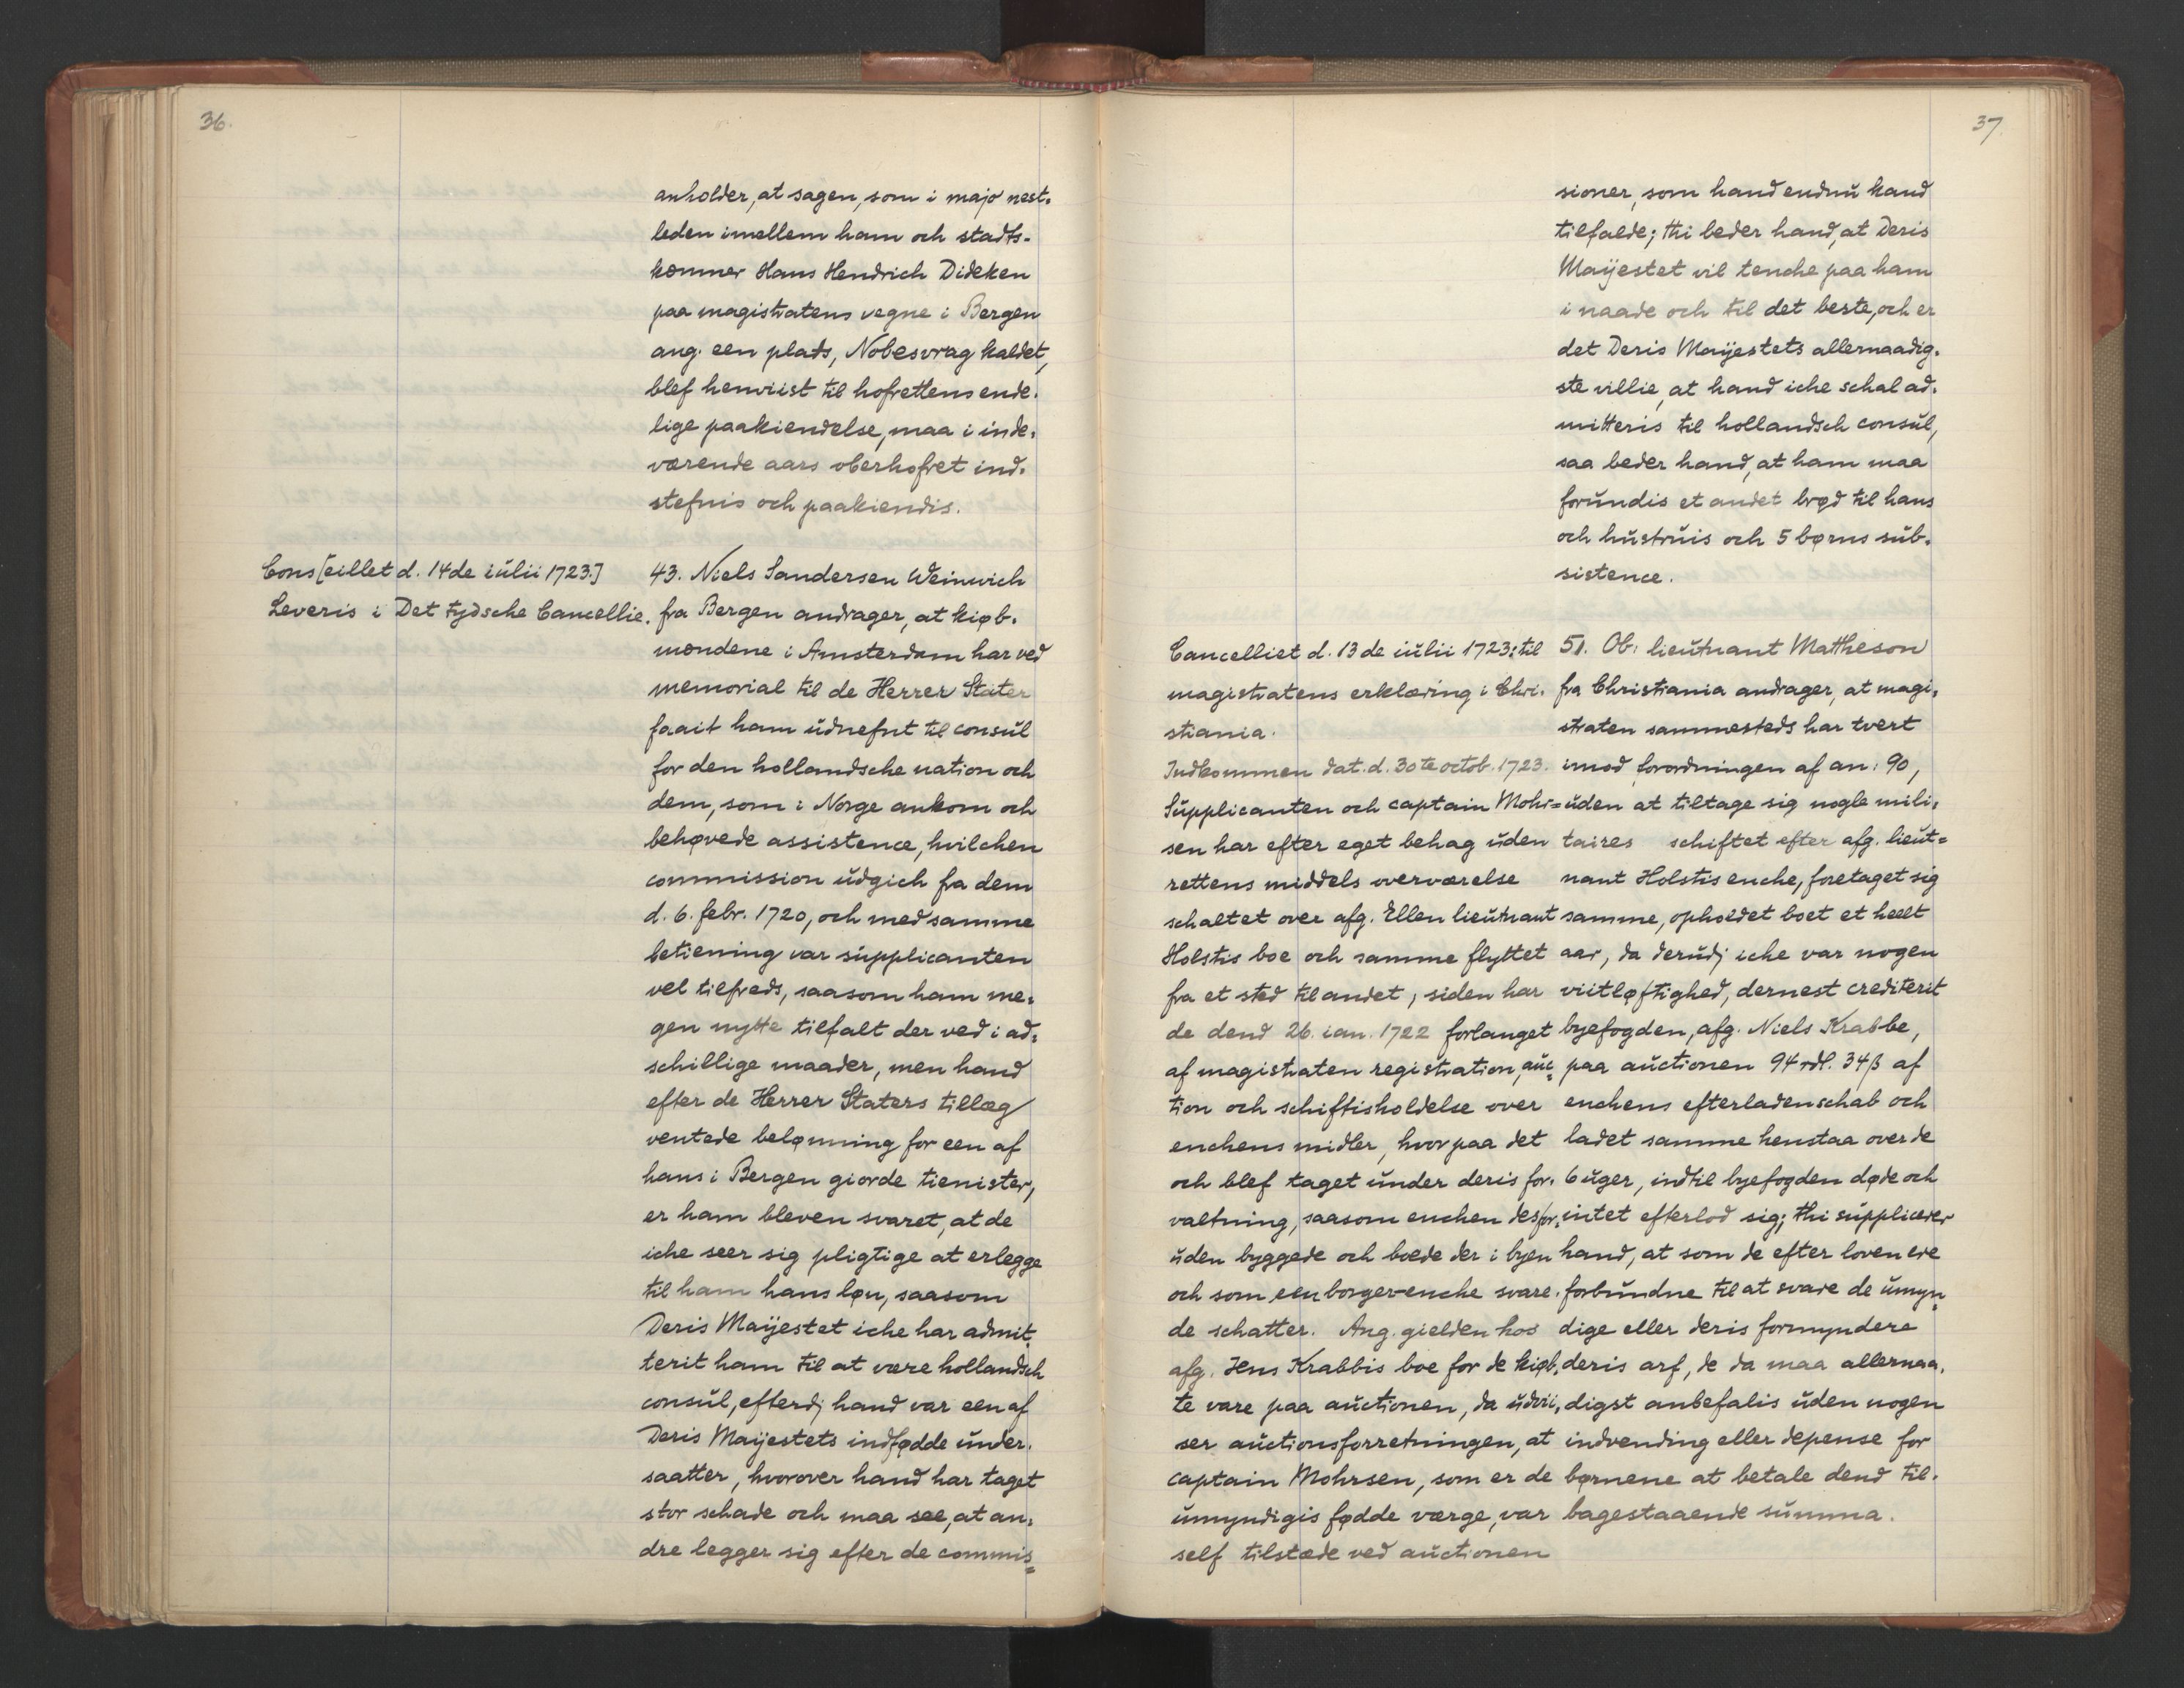 36.
anholder, at sagen, som i majo nest-
leden imellem ham och stadts-
kæmner Hans Hendrich Dideken
paa magistratens vegne i Bergen
ang. een plads, Nobesvrag kaldet,
blef henviist til hofrettens ende-
lige paakiendelse, maa i inde-
værende aars oberhofret ind-
stefnis och paakiendis.
Cons[eillet d. 14de iulii 1723.]
Leveris i Det tydsche Cancellie.
43. Niels Sandersen Weinwich
fra Bergen andrager, at kiøb-
mændene i Amsterdam har ved
memorial til de Herrer Stater
faait ham udnefnt til consul
for den hollandsche nation och
dem, som i Norge ankom och
behøvede assistence, hvilchen
commission udgich fra dem
d. 6. febr. 1720, och med samme
betiening var supplicanten
vel tilfreds, saasom ham me-
gen nytte tilfalt der ved i ad-
schillige maader, men hand
efter de Herrer Staters tillæg
ventede belønning for een af
hans i Bergen giorde tienister,
er ham bleven svaret, at de
iche seer sig pligtige at erlegge
til ham hans løn, saasom
Deris Maÿestet iche har admit-
terit ham til at være hollandsch
consul, efterdj hand var een af
Deris Maÿestets indfødde under-
saatter, hvorover hand har taget
stor schade och maa see, at an-
dre legger sig efter de commis=
37
sioner, som hand endnu kand
tilfalde; thi beder hand, at Deris
Maÿestet vil tenche paa ham
i naade och til det beste, och er
det Deris Maÿestets allernaadig-
ste villie, at hand iche schal ad-
mitteris til hollandsch consul,
saa beder hand, at ham maa
forundis et andet brød til hans
och hustruis och 5 børns sub-
sistence.
Cancelliet d. 13de iulii 1723: til
magistratens erklæring i Chri-
stiania.
Indkommen dat. d. 30te octob. 1723.
Supplicanten och captain Mohr=
sen har efter eget behag uden
rettens middels overværelse
schaltet over afg. Ellen lieutnant
Holstis boe och samme flyttet
fra et sted til andet, siden har
de dend 26. ian. 1722 forlanget
af magistraten registration, auc=
tion och schiftisholdelse over
enchens midler, hvorpaa det
och blef taget under deris for-
valtning, saasom enchen desfor-
uden byggede och boede der i byen
och som een borger-enche svare-
de schatter. Ang. gielden hos
afg. Jens Krabbis boe for de kiøb-
te vare paa auctionen, da udvi-
ser auctionsforretningen, at
captain Mohrsen, som er de
umyndigis fødde værge, var
self tilstæde ved auctionen
51. Ob: lieutnant Mattheson
fra Christiania andrager, at magi-
straten sammesteds har tvert
imod forordningen af an: 90,
uden at tiltage sig nogle mili-
taires schiftet efter afg. lieut=
nant Holstis enche, foretaget sig
samme, opholdet boet et heelt
aar, da derudj iche var nogen
viitløftighed, dernest crediterit
byefogden, afg. Niels Krabbe,
paa auctionen 94 rdl. 34 β af
enchens efterladenschab och
ladet samme henstaa over de
6 uger, indtil byefogden døde och
intet efterlod sig; thi supplicerer
hand, at som de efter loven ere
forbundne til at svare de umyn=
dige eller deris formyndere
deris arf, de da maa allernaa-
digst anbefalis uden nogen
indvending eller depense for
børnene at betale dend til-
bagestaaende summa.